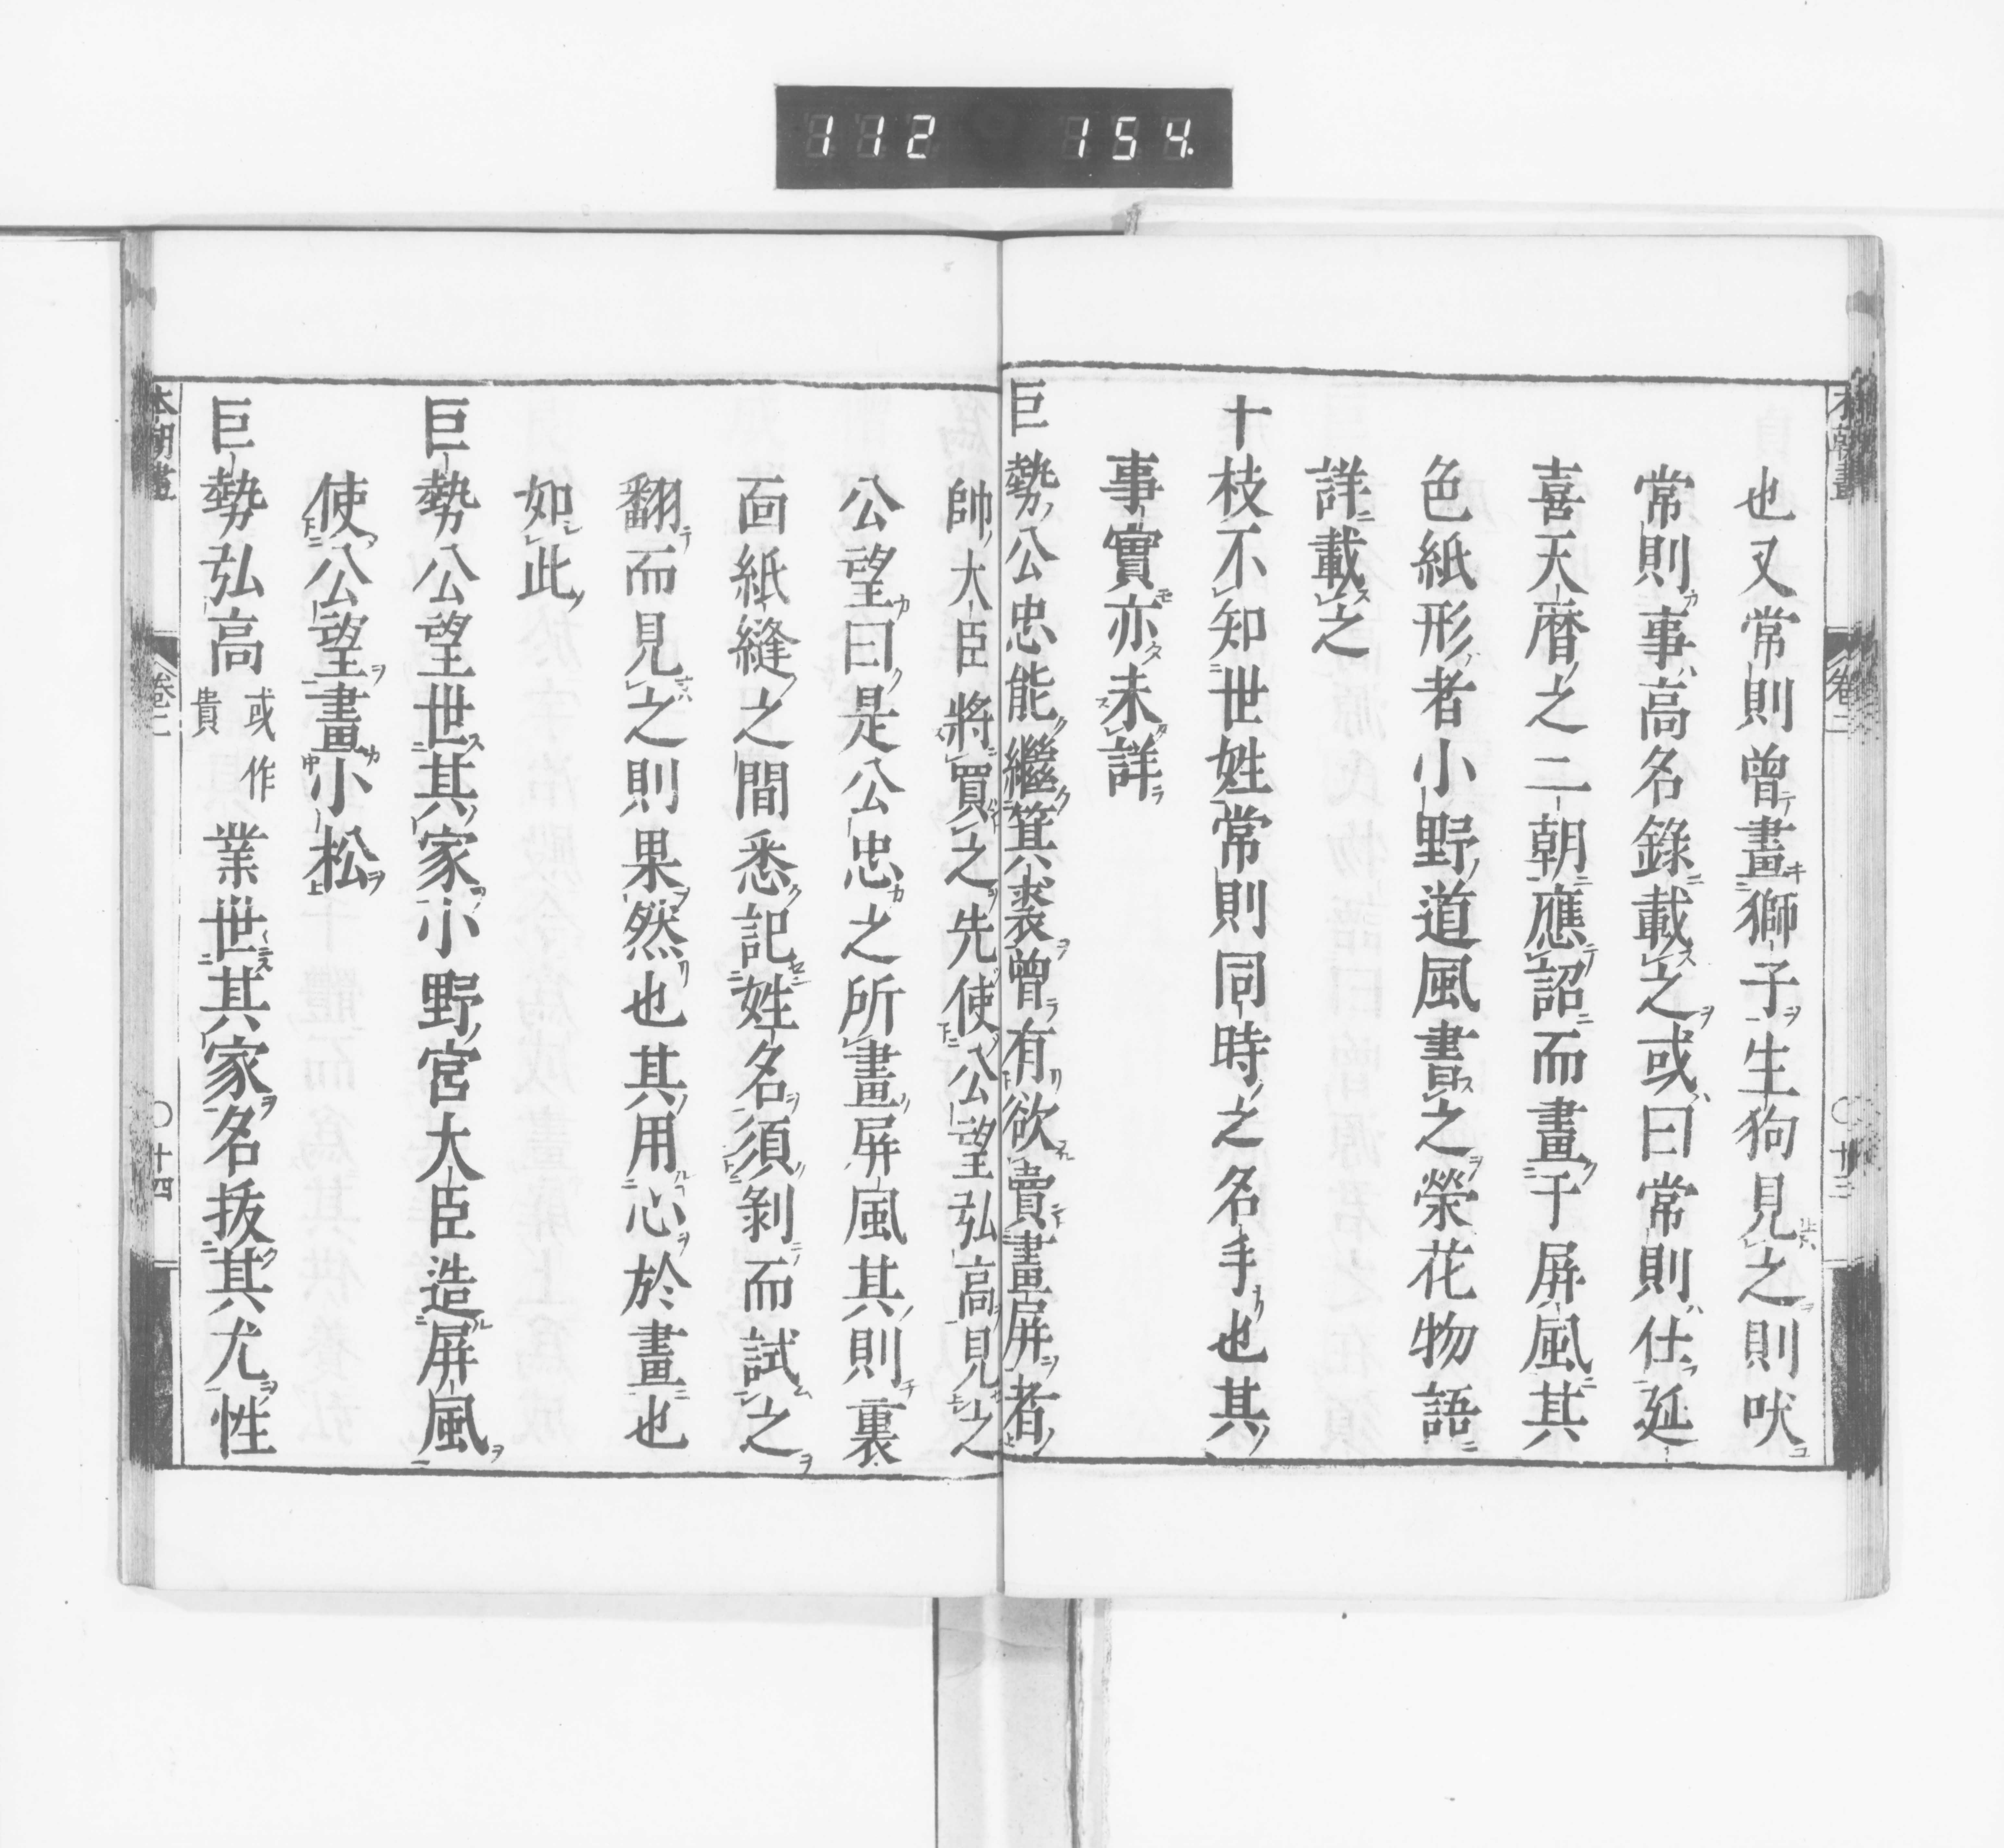 112 154
本朝畫 卷二 〇十三
也又常則曾畫獅子生狗見之則吠
常則事高名錄載之或曰常則仕延
喜天曆之二朝應詔而畫于屏風其
色紙形者小野道風書之榮花物語
詳載之
十枝不知世姓常則同時之名手也其
事實亦未詳
巨勢公忠能繼箕裘曾有欲賣畫屏者
帥大臣將買之先使公望弘高見之
公望曰是公忠之所畫屏風其則裏
面紙縫之間悉記姓名須剝而試之
翻而見之則果然也其用心於畫也
如此
巨勢公望世其家小野宮大臣造屏風
使公望畫小松
巨勢弘高或作貴業世其家名拔其尤性
本朝畫 卷二 〇十四